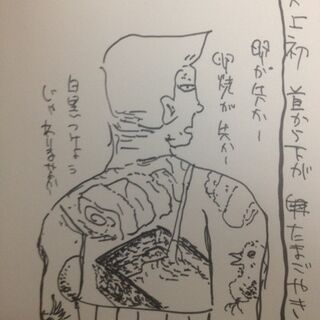 史上初 首から下が 卵たまごやき
卵が先か〜
卵焼が先か〜
白黒つけよう
じゃありませんか〜